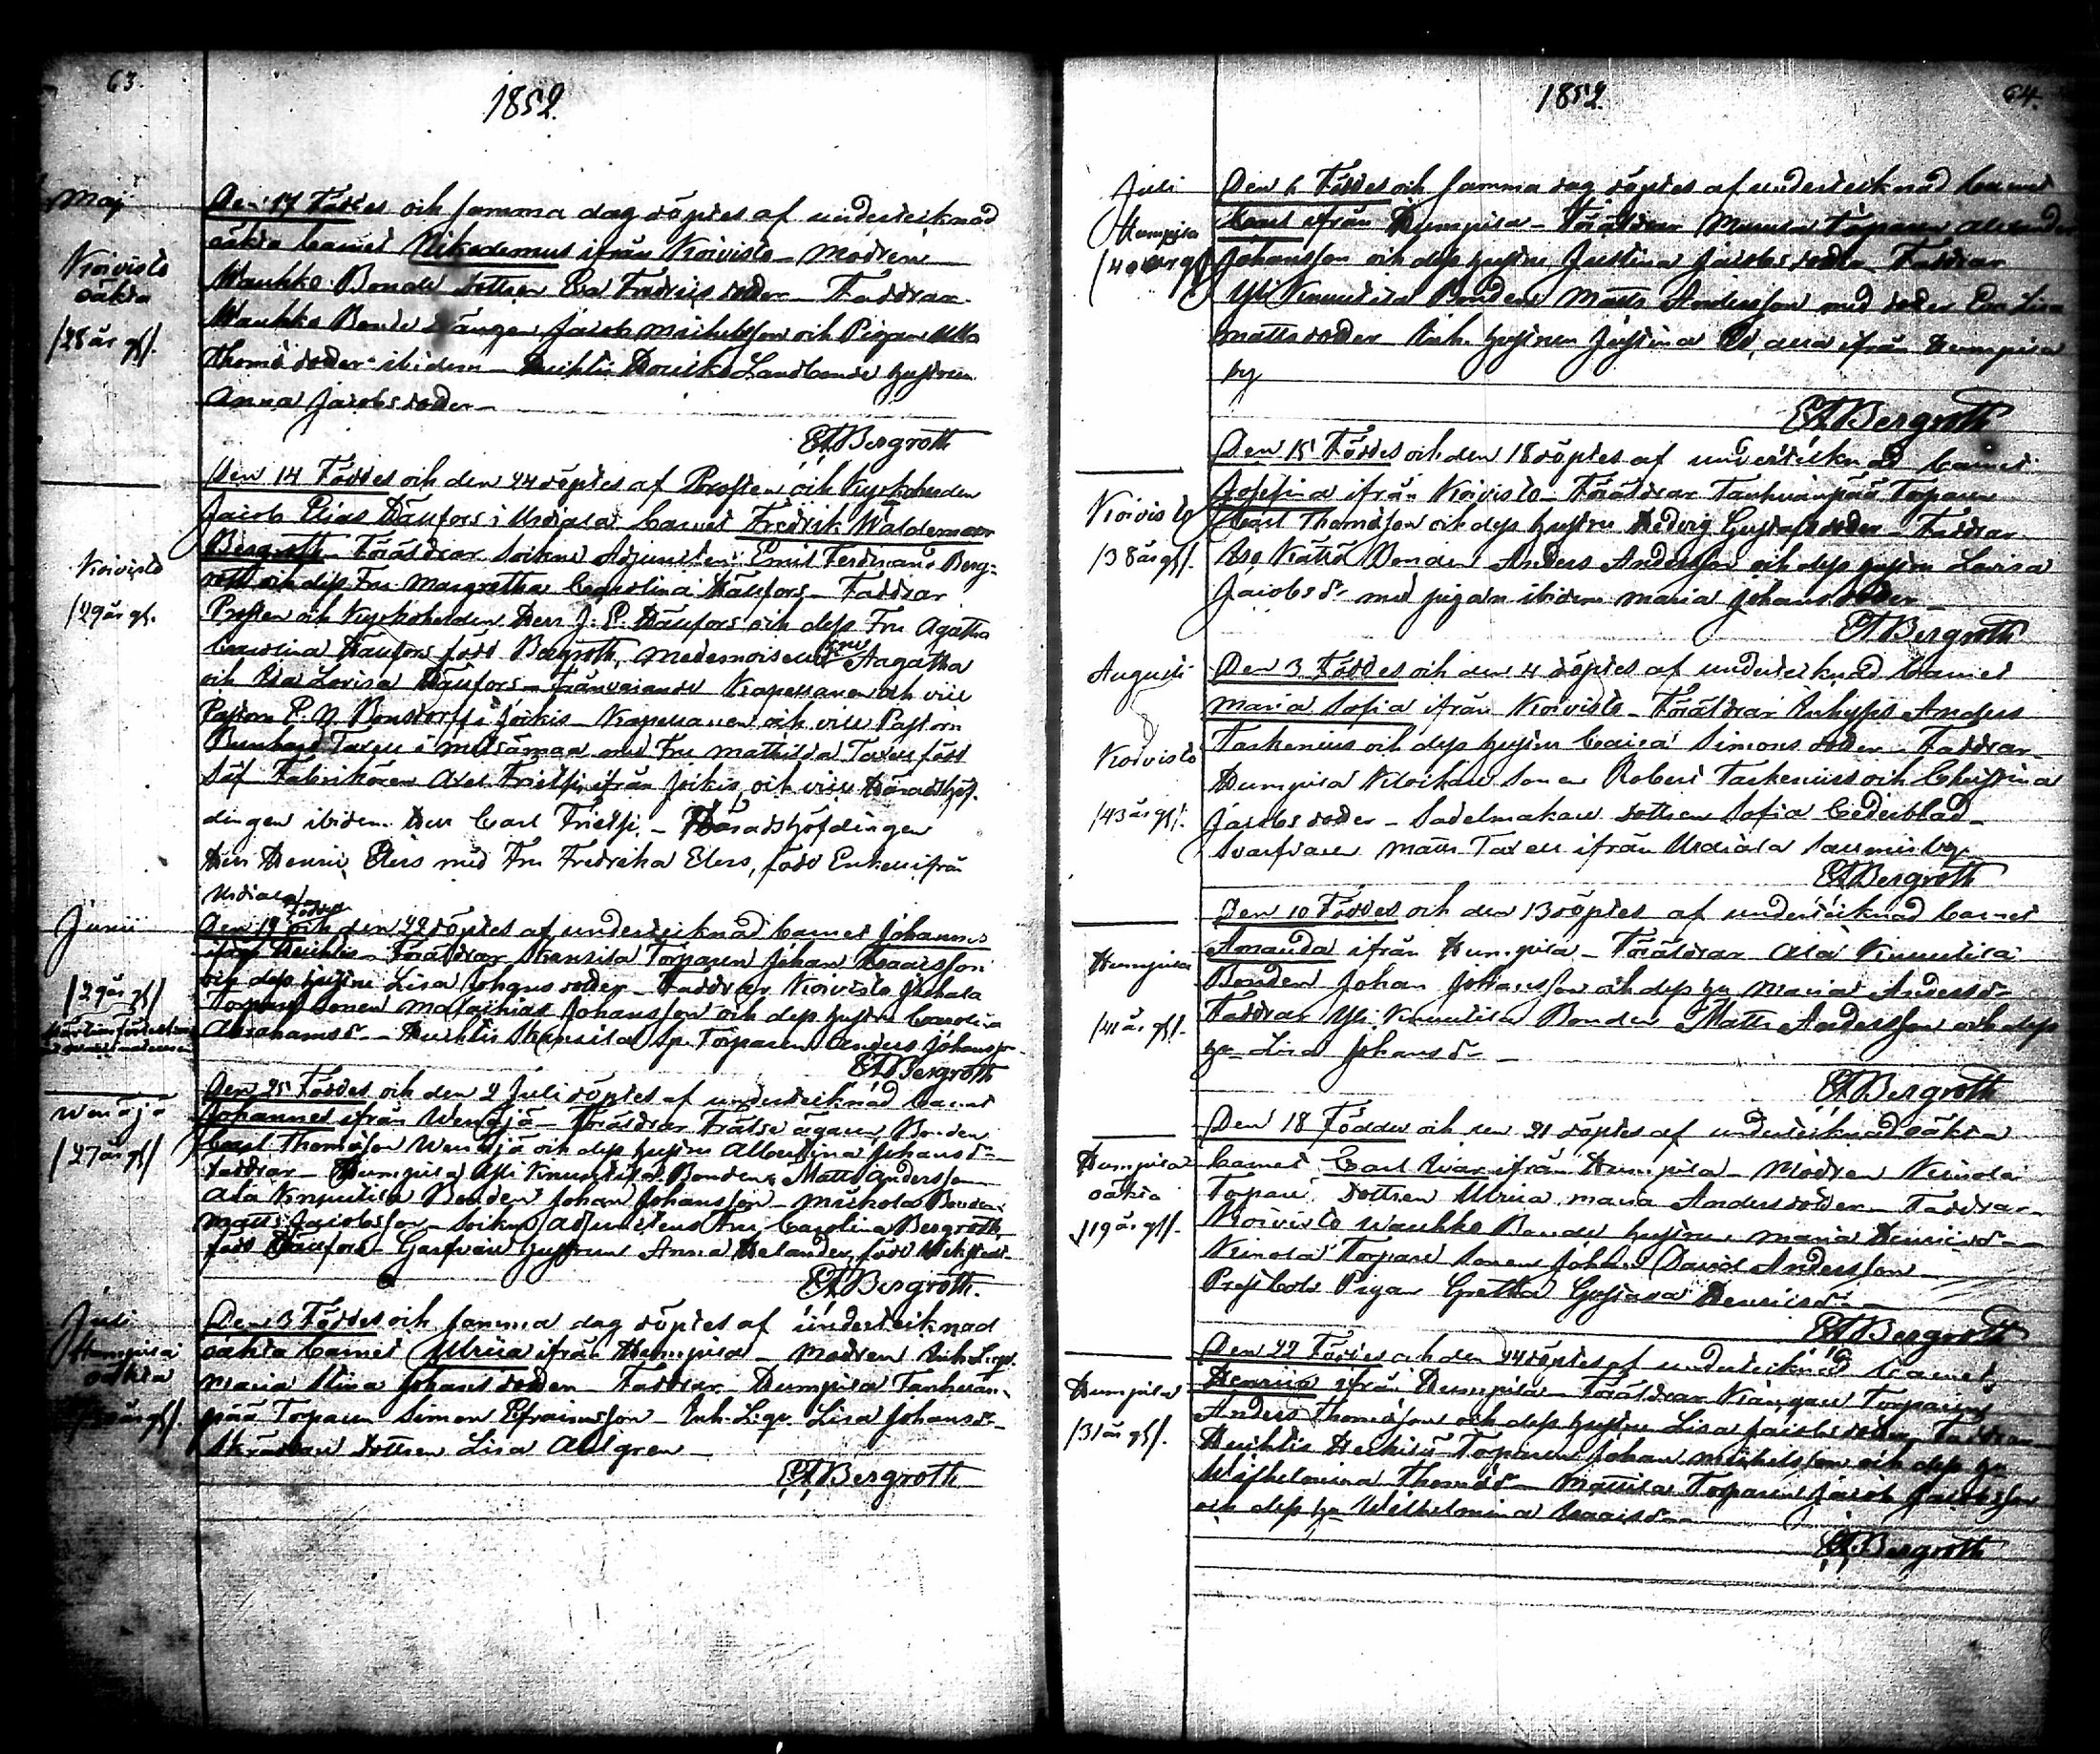 63.
1852.
Maj
Den 17 Föddes och samma dag döptes af undertecknad
Koivisto
oäkta
/28 år gl/.
oäkta barnet Nikodemus ifrån Koivisto – Modren
Waukko Bonde dottren Eva Fredricsdotter – Faddrar
Waukko Bonde drängen Jacob Michelsson och Pigan Ulla
Thomædotter ibidem – Huhtis Landbonde hustrun
Anna Jacobsdotter –
EFBergroth
Den 14 Föddes och den 24 döptes af Prosten och Kyrkoherden
Koivisto
/29 år gl.
Jacob Elias Hällfors i Urdiala barnet Fredrik Waldemar
Bergroth – Föräldrar Sockne Adjuncten Emil Ferdinand Berg-
roth och dess Fru Margretha Carolina Hällfors – Faddrar
Prosten och Kyrkoherden Herr J. E. Hällfors och dess Fru Agatha
Carolina Hällfors född Bergroth, Mademoiselle Aagatha
och Ida Lovisa Hällfors – frånvarande Kapellanen och vice
Pastorn E. N. Bonsdorff i Jockis – Kapellanen och vice Pastorn
Bernhard Taxell i med Fru Mathilda Taxell född
Fabrikören Axel ifrån Jockis, och vice Häradshöf-
dingen ibidem Herr Carl – Häradshöfdingen
Herr Henric Elers med Fru Fredrika Elers, född Enkell ifrån
Urdiala
Junii
/29 år gl/
Föddes
Den 19 och den 22 döptes af undertecknad barnet Johannes
ifrån Huhtis – Föräldrar Torparen Johan Isaacsson
och dess hustru Lisa Johansdotter – Faddrar Koivisto
Torpare sonen Malachias Johansson och dess hustru Carolina
Abrahamsd:r – Huhtis Torparen Anders Johansson
EFBergroth
Wenäjä
/27 år gl/
Den 25 Föddes och den 2 Juli döptes af undertecknad barnet
Johannes ifrån Wenäjä – Föräldrar Frälse ägaren Bonden
Carl Thomasson Wenäjä och dess hustru Albertina Johansd:r
Faddrar – Humpila Yli Knuutila Bonden Matts Andersson
Ala Knuutila Bonden Johan Johansson – Michola Bonden
Matts Jacobsson – Sockne Adjunctens Fru Carolina Bergroth,
född Hällfors – Garfvare hustrun Anna Helander, född
EFBergroth.
Juli
Humpila
oäkta
Den 3 Föddes och samma dag döptes af undertecknad
oäkta barnet Ulrica ifrån Humpila – Modren Inh. L:qv.
Maria Stina Johansdotter – Faddrar – Humpila Tanhuan-
pää Torparen Simon Efraimsson – Inh. L:qv. Lisa Johansd:r
Skräddare dottren Lisa Ahlgren –
EFBergroth
1852.
64.
Juli
Humpila
/40 år gl/
Den 6 Föddes och samma dag döptes af undertecknad barnet
Karl ifrån Humpila – Föräldrar Torparen Alexander
Johansson och dess hustru Justina Jacobsdotter – Faddrar
Yli Knuutila Bonden Matts Andersson med Eva Lisa
Mattsdotter Inh. hustrun Justina ifrån Humpila
by
EFBergroth
Koivisto
/38 år gl/.
Den 15 Föddes och den 18 döptes af undertecknad barnet
Josefina ifrån Koivisto – Föräldrar Tanhuanpää Torparen
Carl Thomasson och dess hustru Hedvig Gustafsdotter – Faddrar
Iso Bonden Anders Andersson och dess hustru Lovisa
Jacobsd:r med pigan ibidem Maria Johansdotter –
EFBergroth
Augusti
Koivisto
/43 år gl/.
Den 3 Föddes och den 4 döptes af undertecknad barnet
Maria Sofia ifrån Koivisto – Föräldrar Anders
Taskenius och dess hustru Caisa Simonsdotter – Faddrar
Humpila Klockare sonen Robert Taskenius och Christina
Jacobsdotter – Sadelmakare dottren Sofia Cederblad –
Svarfvaren Matts Taxell ifrån Urdiala by
EFBergroth
Humpila
/41 år gl/.
Den 10 Föddes och den 13 döptes af undertecknad barnet
Amanda ifrån Humpila – Föräldrar Ala Knuutila
Bonden Johan Johansson och dess hu Maria Andersd:r
Faddrar Yli Knuutila Bonden Matts Andersson och dess
hu Lisa Johansd:r –
EFBergroth
Humpila
oäkta
/19 år gl/.
Den 18 Föddes och den 21 döptes af undertecknad oäkta
barnet Carl Ivar ifrån Humpila – Modren
Torpare dottren Ulrica Maria Andersdotter – Faddrar
Koivisto Waukko Bonde hustrun Maria Henricsd:r –
Torpare sonen Johan David Andersson –
Pigan Gretha Gustava Henricsd:r –
EFBergroth
Humpila
/31 år gl/.
Den 22 Föddes och den 24 döptes af undertecknad barnet
Henrica ifrån Humpila – Föräldrar Torparen
Anders Thomasson och dess hustru Lisa Jacobsdotter – Faddrar
Huhtis Torparen Johan Michelsson och dess hu
Wilhelmina Thomasd:r – Mattila Torparen Jacob Jacobsson
och dess hu Wilhelmina Isaacsd:r –
EFBergroth